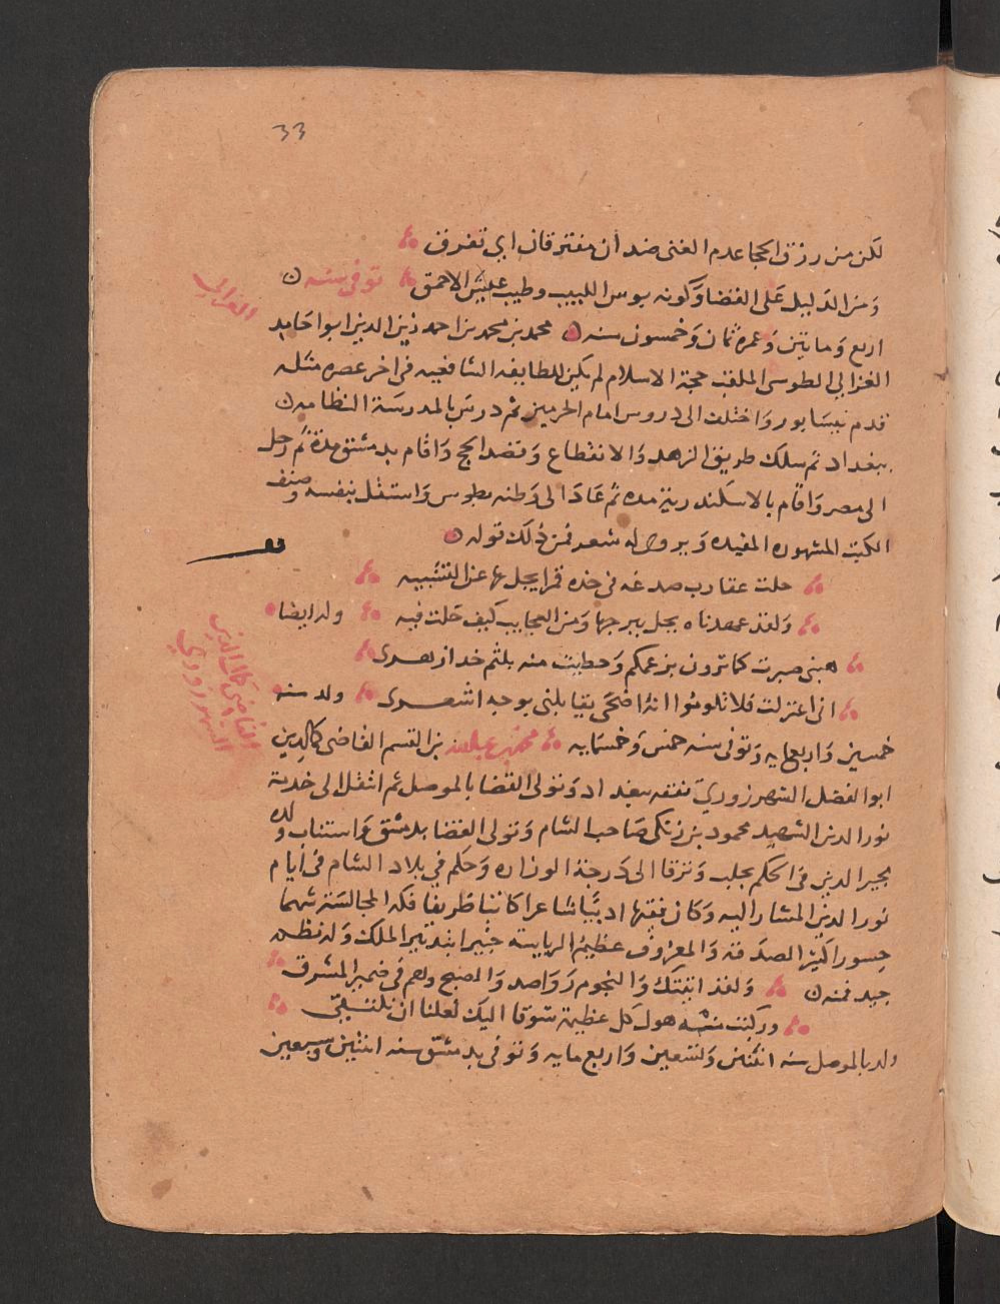 33
لكن من رزق الحجا عدم الغنى ضدان مفترقان اي تفرق
ومن الدليل على القضا وكونه بوس اللبيب وطيب عيش الاحمق توفي سنه
الغزالي
اربع وماتين وعمره ثمان وخمسون سنه محمد بن محمد بن احمد زين الدين ابوا حامد
الغزالي الطوسي الملقب حجة الاسلام لم يكن للطايفه الشافعيه في اخر عصره مثله
قدم نيسابور واختلف الى دروس امام الحرمين ثم درس بالمدرسة النظاميه
ببغداد ثم سلك طريق الزهد والانقطاع وقصد الحج واقام بدمشق مدة ثم رحل
الى مصر واقام بالاسكندرية مده ثم عاد الى وطنه بطوس واستقل بنفسه وصنف
الكتب المشهوره المفيده ويروى له شعر فمن ذلك قوله
حلت عقارب صدغه في خده قمرا يجل بها عن التشبيه
ولقد عهدناه يحل ببرجها ومن العجايب كيف حلت فيه وله ايضا
هبني صبرت كما ترون بزعمكم وحظيت منه بلثم خد ازهرى
اني اعتزلت فلا تلوموا انه اضحى يقابلني بوجه اشعرى ولد سنه
القاضي كمال الدين
الشهرزوري
خمسين واربعمايه وتوفي سنه خمس وخمسمايه محمد بن عبدالله بن القسم القاضي كمال الدين
ابوا الفضل الشهرزوري تفقه ببغداد وتولى القضا بالموصل ثم انتقل الى خدمة
نور الدين الشهيد محمود بن زنكي صاحب الشام وتولى القضا بدمشق واستناب ولده
الدين في الحكم بحلب وترقا الى درجة الوزاره وحكم في بلاد الشام في ايام
نور الدين المشار اليه وكان فقيها اديبا شاعرا كاتبا ظريفا فكه المجالسة شهما
جسورا كثير الصدقه والمعروف عظيم الرياسه خبيرا بتدبير الملك وله نظم
جيد فمنه ولقد اتيتك والنجوم رواصد والصبح وهم في ضمير المشرق
وركبت هول كل عظيمة شوقا اليك لعلنا ان نلتقي
ولد بالموصل سنه اثنتين وتسعين واربع مايه وتوفي بدمشق سنه اثنتين وسبعين